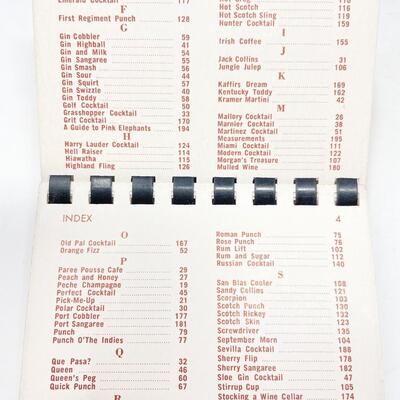 Emerald Cocktail 117
F
First Regiment Punch 128
G
Gin Cobbler 59
Gin Highball 41
Gin and Milk 54
Gin Sangaree 55
Gin Smash 56
Gin Sour 44
Gin Squirt 57
Gin Swizzle 40
Gin Toddy 58
Golf Cocktail 50
Grasshopper Cocktail 33
Grit Cocktail 170
A Guide to Pink Elephants 194
H
Harry Lauder Cocktail 124
Hell Raiser 114
Hiawatha 115
Highland Fling 126
Hot Scotch 116
Hot Scotch Sling 119
Hunter Cocktail 159
I
Irish Coffee 155
J
Jack Collins 31
Jungle Julep 106
K
Kaffirs Dream 169
Kentucky Toddy 162
Kramer Martini 42
M
Mallory Cocktail 26
Marnier Cocktail 38
Martinez Cocktail 51
Measurements 195
Miami Cocktail 111
Modern Cocktail 122
Morgan's Treasure 107
Mulled Wine 180
INDEX 4
O
Old Pal Cocktail 167
Orange Fizz 52
P
Paree Pousse Cafe 29
Peach and Honey 27
Peche Champagne 19
Perfect Cocktail 45
Pick-Me-Up 21
Polar Cocktail 30
Port Cobbler 177
Port Sangaree 181
Punch 79
Punch O'The Indies 77
Q
Que Pasa? 32
Queen 46
Queen's Peg 60
Quick Punch 67
R
Roman Punch 75
Rose Punch 76
Rum Lift 102
Rum and Sugar 112
Russian Cocktail 140
S
San Blas Cooler 108
Sandy Collins 121
Scorpion 103
Scotch Punch 130
Scotch Rickey 132
Scotch Skin 123
Screwdriver 135
September Morn 104
Sevilla Cocktail 188
Sherry Flip 178
Sherry Sangaree 182
Sloe Gin Cocktail 47
Stirrup Cup 105
Stocking a Wine Cellar 174